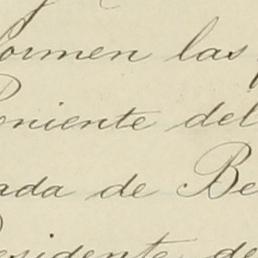 formen las
Teniente del
ada de Be
Presidente de